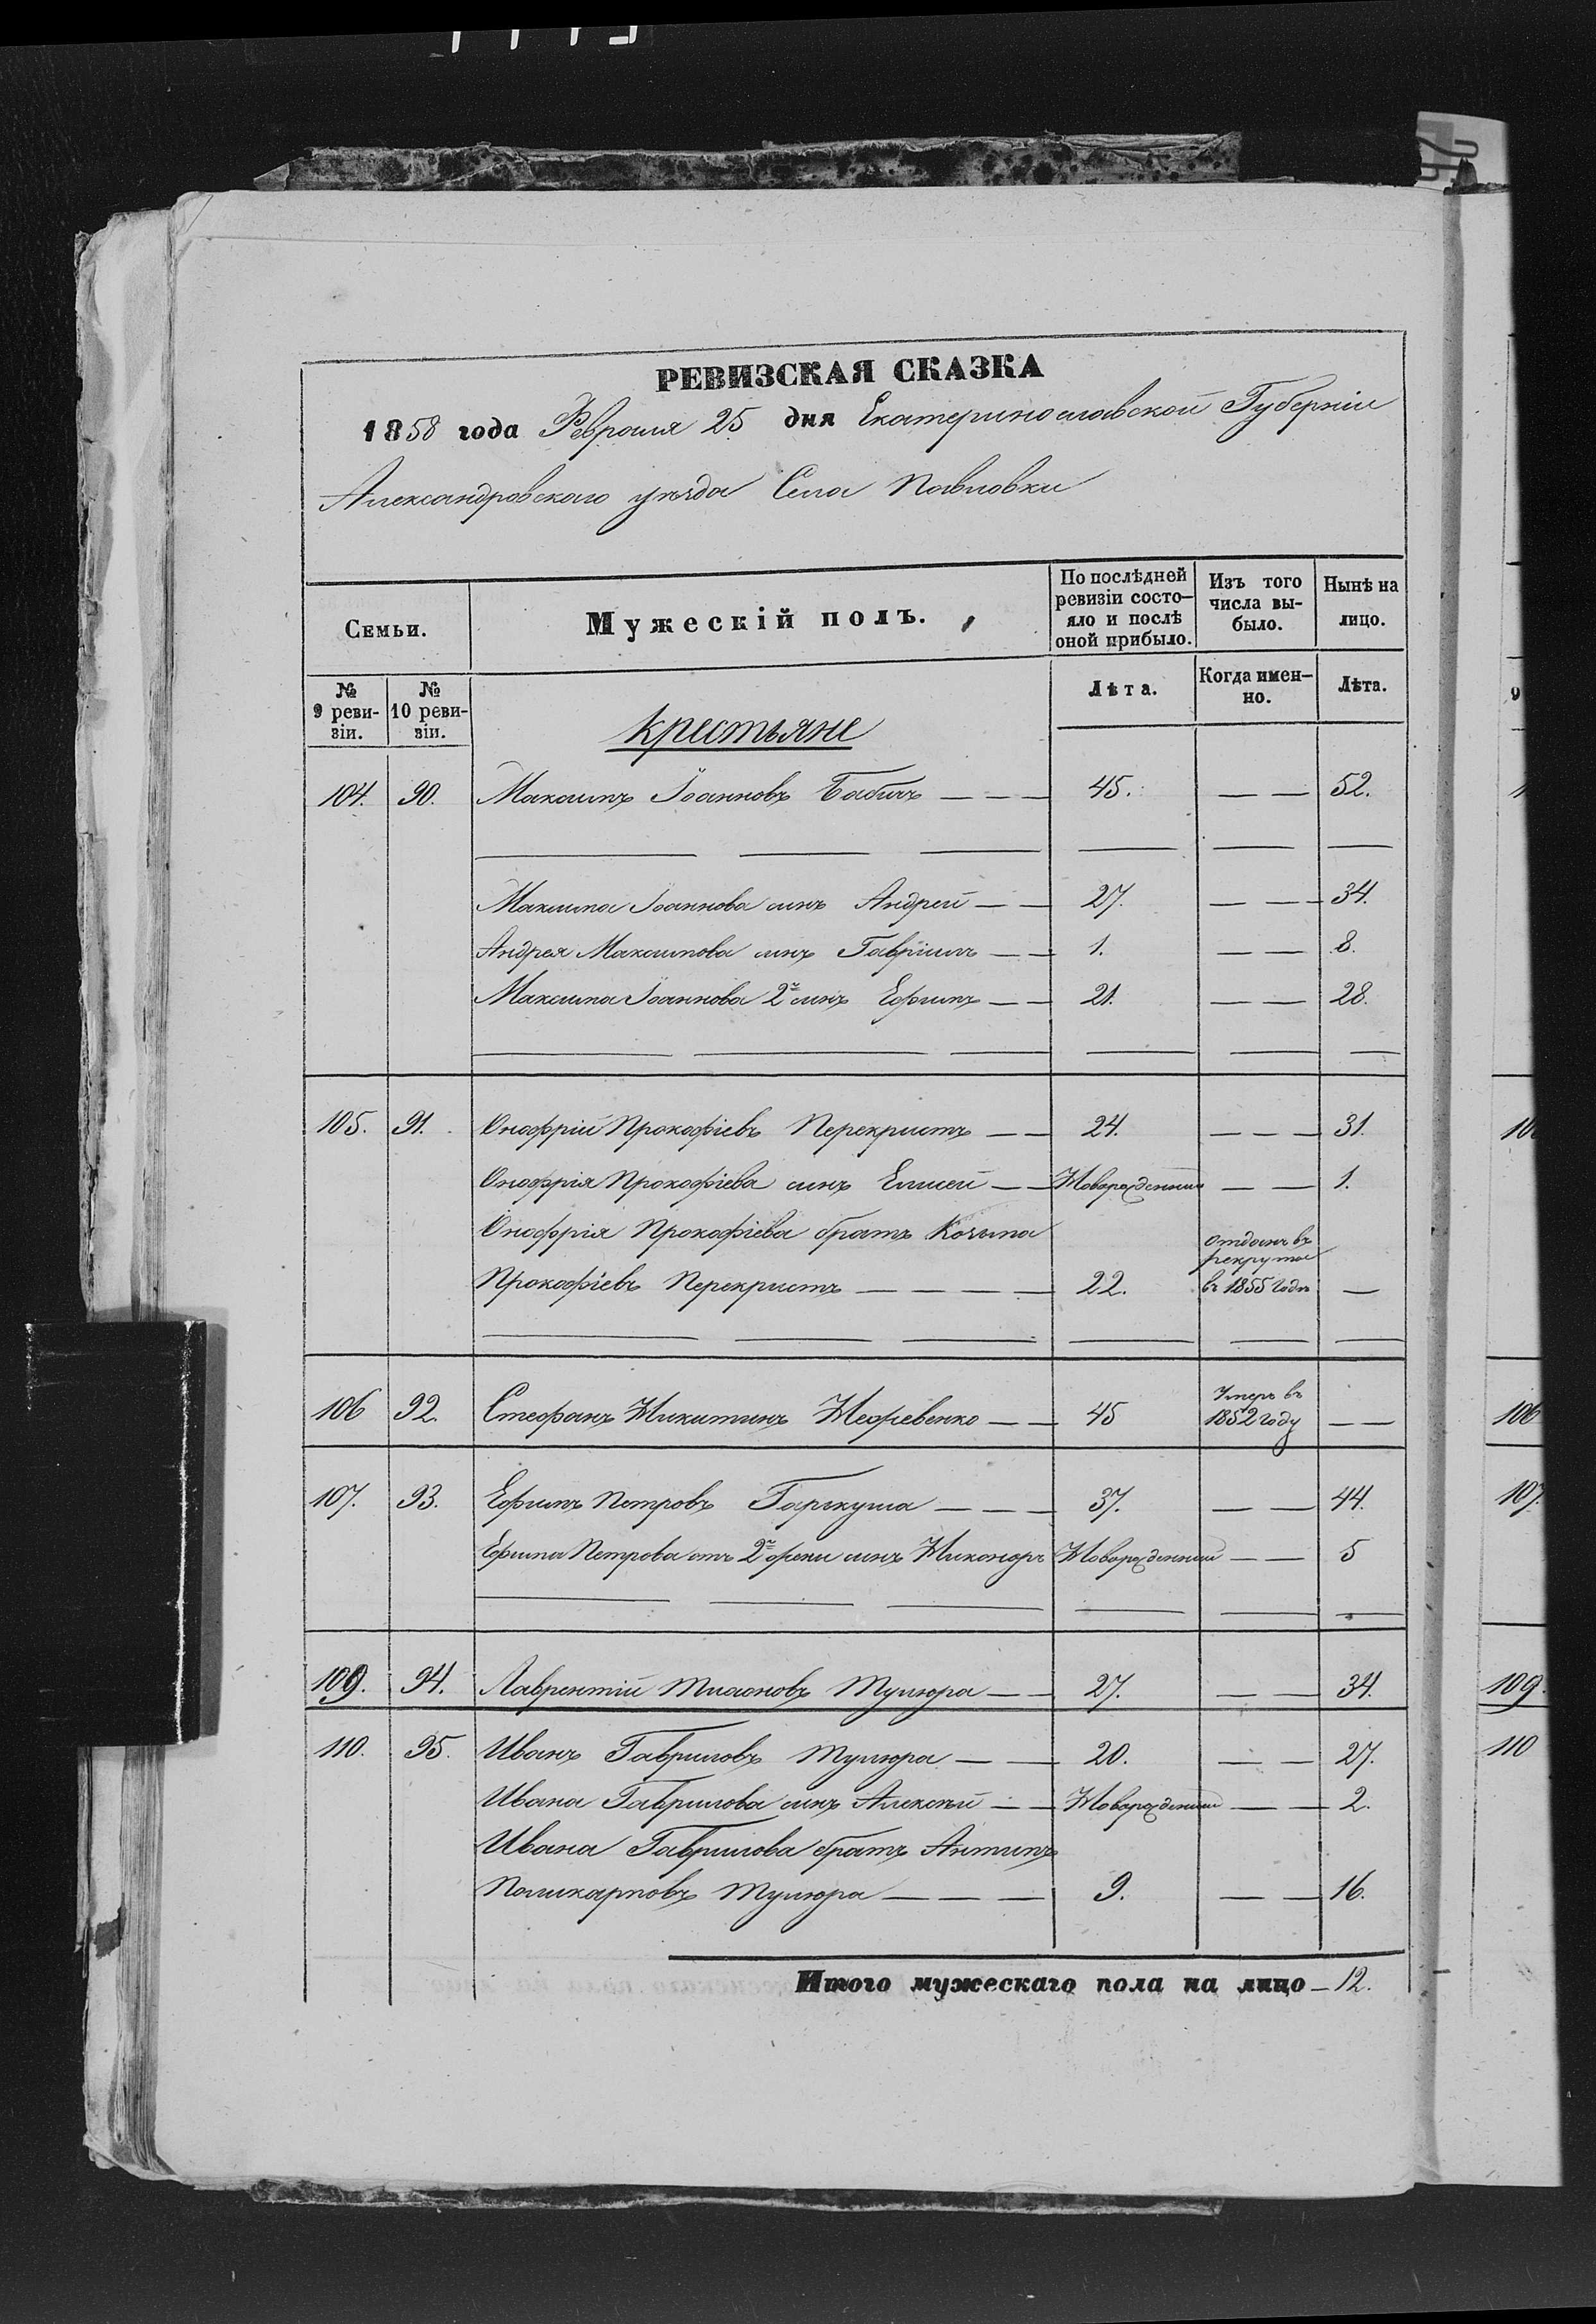 РЕВИЗСКАЯ СКАЗКА
1858 года Февраля 25 дня Екатеринославской Губерніи
Александровскаго уѣзда Села Павловки
Семьи.
Мужескій полъ.
По послѣдней ревизіи состо-яло и послѣ оной прибыло.
Изъ того числа вы-было.
Нынѣ на лицо.
№ 9 реви-зіи.
№ 10 реви-зіи.
Лѣта.
Когда имен-но.
Лѣта.
Крестьяне
104. 90. Максимъ Іоанновъ Бабичъ — — — 45. — — 52.
Максима Іоаннова сынъ Андрей — — 27. — — 34.
Андрея Максимова сынъ Гавріилъ — — 1. — — 8.
Максима Іоаннова 2й сынъ Ефимъ — — 21. — — 28.
105. 91. Онофрій Прокофіевъ Перекристъ — — 24. — — — 31.
Онофрія Прокофіева сынъ Елисей — — Новорожденный — — 1.
Онофрія Прокофіева братъ Козьма
отданъ въ рекруты
Прокофіевъ Перекристъ — — — — 22. въ 1855 годѣ —
Умеръ въ
106 92. Стефанъ Никитинъ — — 45 1852 году — —
107. 93. Ефимъ Петровъ Гаркуша — — — 37. — — 44.
Ефима Петрова отъ 2й жены сынъ Никоноръ Новорожденный — — 5
109. 94. Лаврентій Мулюра — — 27. — — 34.
110. 95. Иванъ Гавриловъ Мулюра — — 20. — — 27.
Ивана Гаврилова сынъ Алексѣй — — Новорожденный — — 2.
Ивана Гаврилова братъ Антипъ
Поликарповъ Мулюра — — — 9. — — 16.
Итого мужескаго пола на лицо — 12.
9
106
107.
109.
110